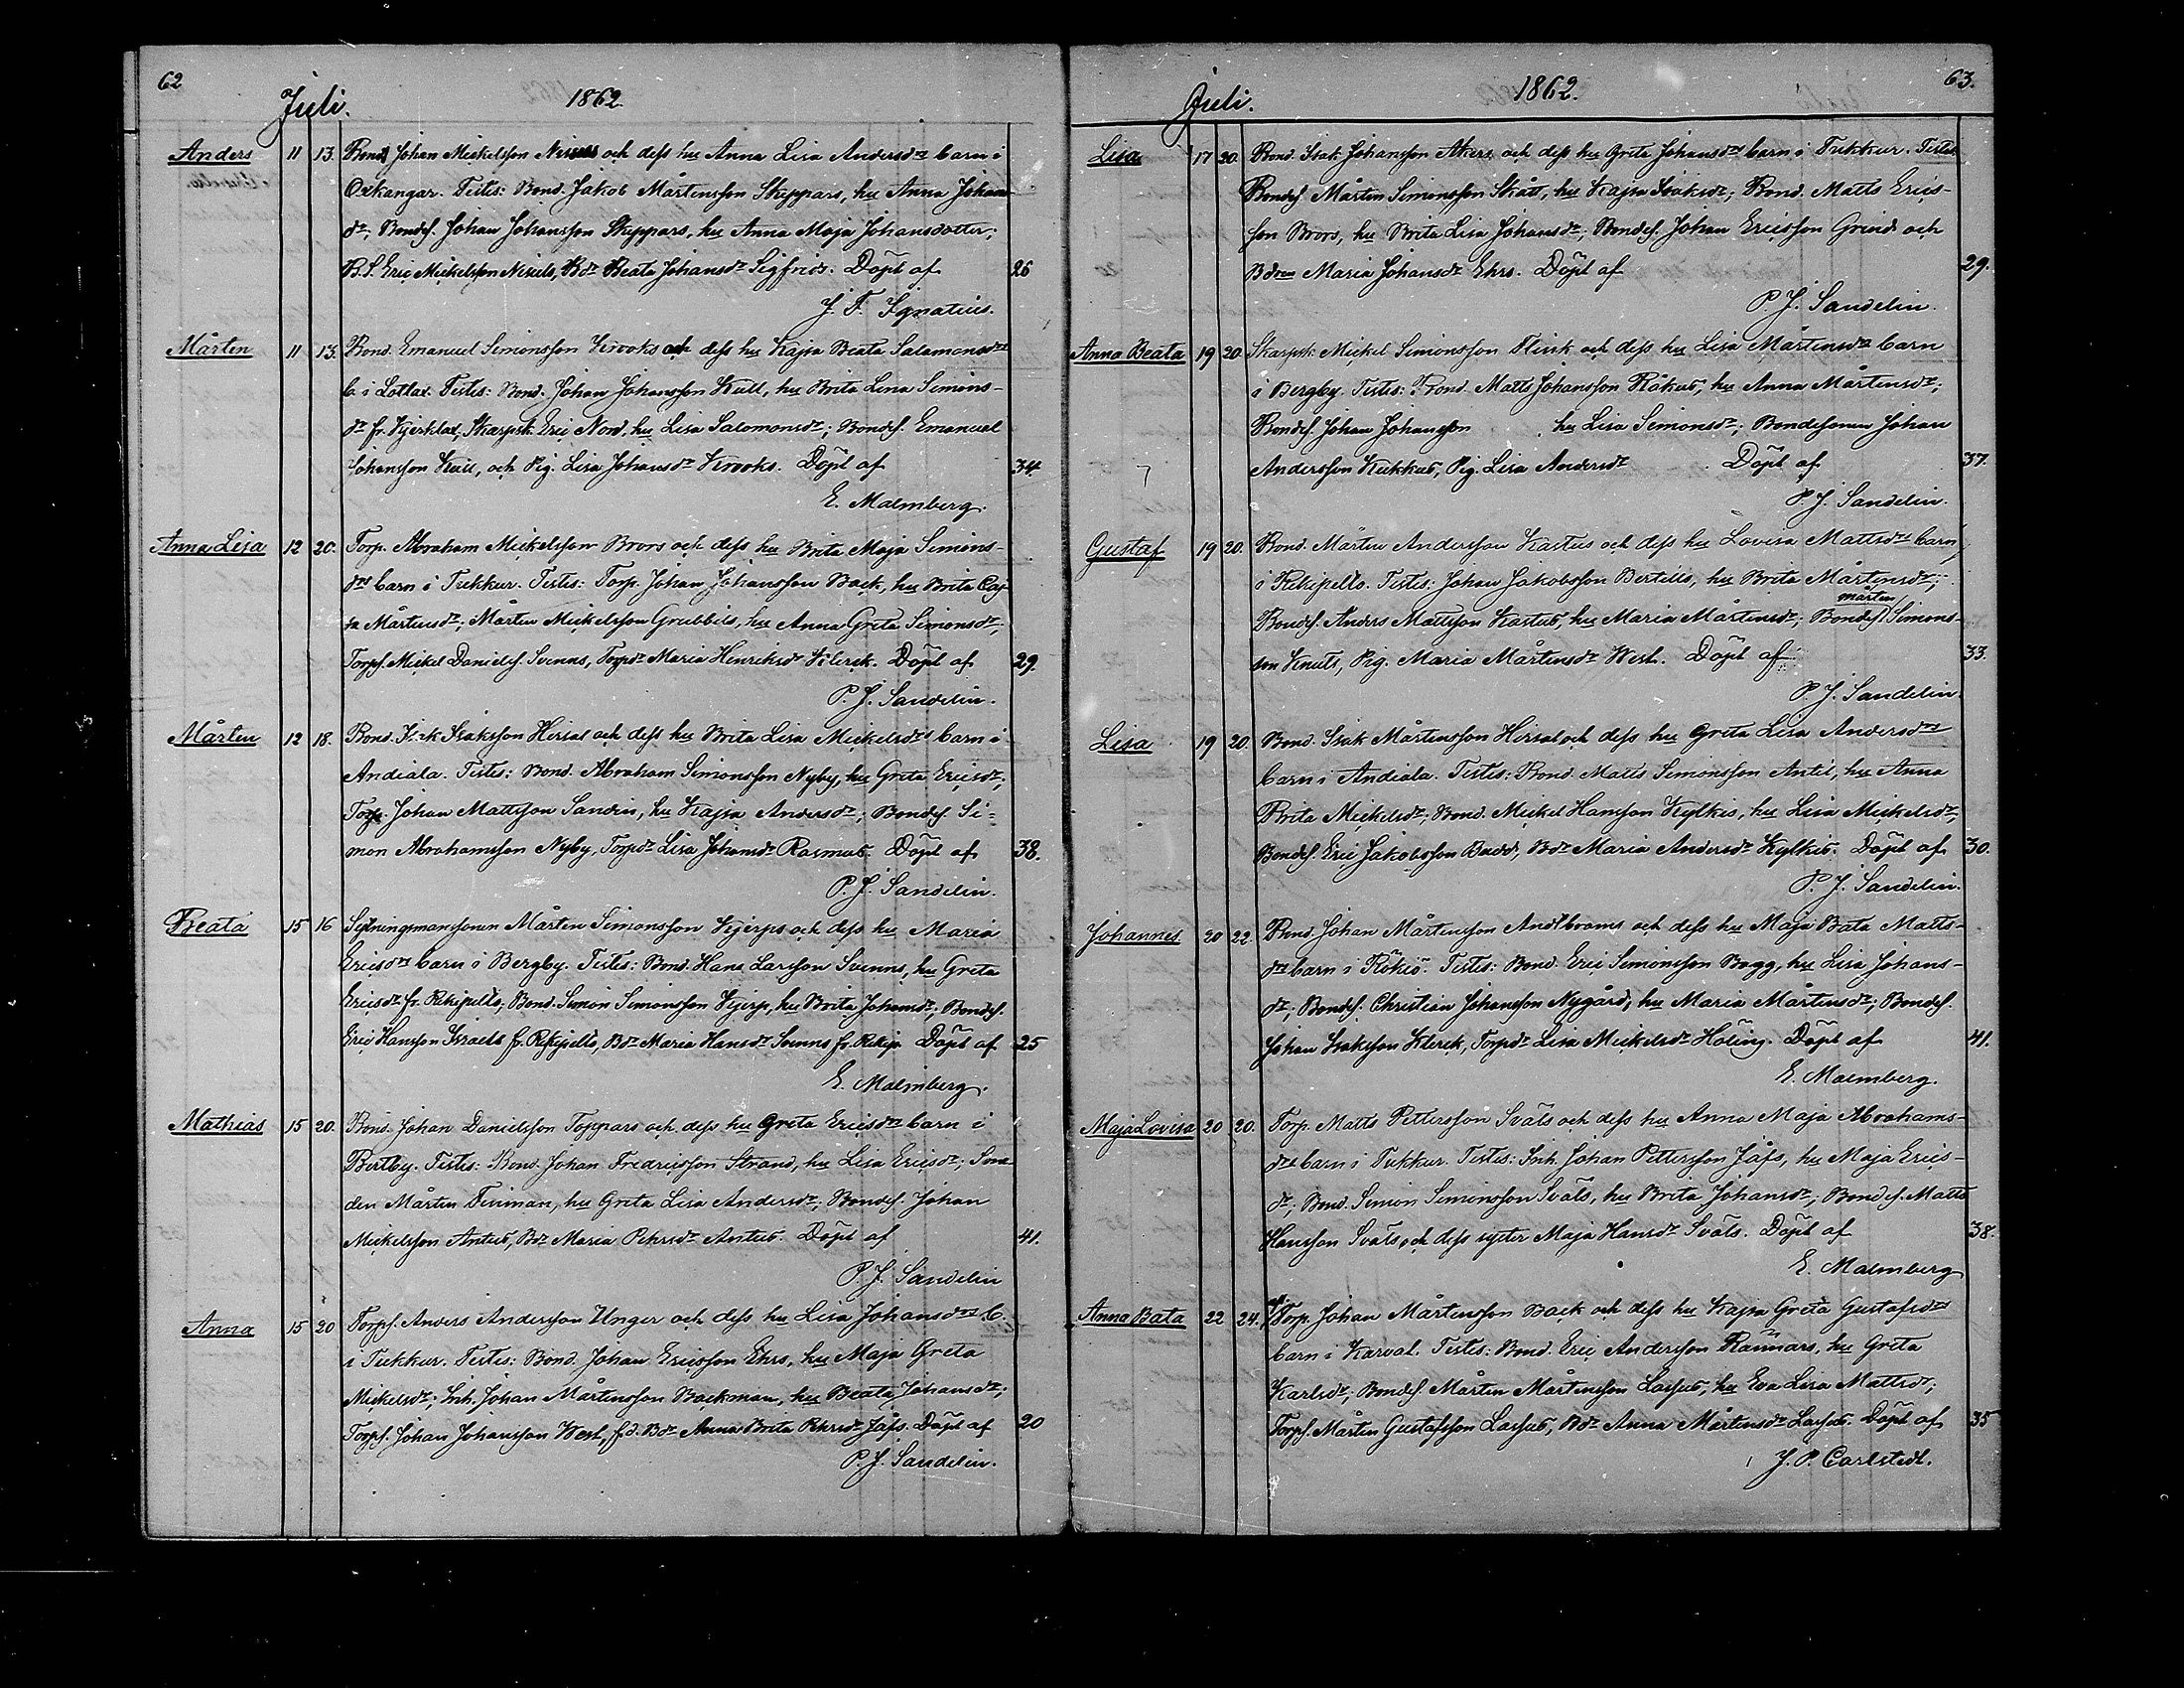 62
Juli. 1862
Anders 11 13. Bond. Johan Mickelsson Nissils och dess hu Anna Lisa Andersdrs barn i
Oxkangar. Testes: Bond. Jakob Mårtensson Skeppars, hu Anna Johans-
dr; Bondes. Johan Johansson Skeppars, hu Anna Maja Johansdotter;
B.S. Eric Mickelsson Nissils, Bdr Beata Johansdr Sigfrids. Döpt af 26
J. F. Ignatius.
Mårten 11 13. Bond. Emanuel Simonsson Krooks och dess hu Kajsa Beata Salamonsdrs
b. i Lotlax. Testes: Bond. Johan Johansson Kull, hu Brita Lena Simons-
dr fr. Kjerklax, Skarpsk. Eric Nord, hu Lisa Salomonsdr; Bondes. Emanuel
Johansson Kull, och Pig. Lisa Johansdr Krooks. Döpt af 34
E. Malmberg.
Anna Lisa 12 20. Torp. Abraham Mickelsson Brors och dess hu Brita Maja Simons-
drs barn i Tukkur. Testes: Torp. Johan Johansson Back, hu Brita Caj-
sa Mårtensdr; Mårten Mickelsson Grubbils, hu Anna Greta Simonsdr;
Torps. Mickel Daniels. Svenns, Torpdr Maria Henriksdr Klerck. Döpt af 29.
P. J. Sandelin.
Mårten 12 18. Bond. Isak Isaksson Hirsal och dess hu Brita Lisa Mickelsdrs barn i
Andiala. Testes: Bond. Abraham Simonsson Nyby, hu Greta Ericsdr;
Torp. Johan Mattsson Sandin, hu Kajsa Andersdr; Bondes. Si=
mon Abrahamsson Nyby, Torpdr Lisa Johansdr Rasmus. Döpt af 38.
P. J. Sandelin.
Beata 15 16 Sytningsmanssonen Mårten Simonsson Kjerps och dess hu Maria
Ericsdrs barn i Bergby. Testes: Bond. Hans Larsson Svenns, hu Greta
Ericsdr fr. Rekipelto; Bond. Simon Simonsson Kjerp, hu Brita Johansdr; Bondes.
Eric Hansson Israels fr. Rekipelto, Bdr Maria Hansdr Svenns fr. Rekip. Döpt af 25
E. Malmberg.
Mathias 15 20. Bond. Johan Danielsson Toppars och dess hu Greta Ericsdrs barn i
Bertby. Testes: Bond. Johan Fredricsson Strand, hu Lisa Ericsdr;
den Mårten Finman, hu Greta Lisa Andersdr; Bondes. Johan
Mickelsson Antus, Bdr Maria Pehrsdr Antus. Döpt af 41.
P. J. Sandelin
Anna 15 20 Torps. Anders Andersson Unger och dess hu Lisa Johansdrs b.
i Tukkur. Testes: Bond. Johan Ericsson Ehrs, hu Maja Greta
Mickelsdr; Inh. Johan Mårtensson Backman, hu Beata Johansdr;
Torps. Johan Johansson West, f.d. Bdr Anna Brita Pehrsdr Jåfs. Döpt af 20
P. J. Sandelin.
63.
Juli. 1862.
Lisa 17 20. Bond. Isak Johansson Akers och dess hu Greta Johansdrs barn i Tukkur. Testes
Bondes. Mårten Simonsson Skått, hu Kajsa Isaksdr; Bond. Matts Erics-
son Brors, hu Brita Lisa Johansdr; Bondes. Johan Ericsson Grinds och
Bdren Maria Johansdr Ehrs. Döpt af 29.
P. J. Sandelin.
Anna Beata 19 20. Skarpsk. Mickel Simonsson Flink och dess hu Lisa Mårtensdrs barn
i Bergby. Testes: Bond. Matts Johansson Råkus, hu Anna Mårtensdr;
Bondes. Johan Johansson hu Lisa Simonsdr; Bondesonen Johan
Andersson Kukkus, Pig. Lisa Andersdr Döpt af 37.
P. J. Sandelin.
Gustaf 19 20. Bond. Mårten Andersson Kartus och dess hu Lovisa Mattsdrs barn
i Rekipelto. Testes: Johan Jakobsson Bertills, hu Brita Mårtensdr;
Bondes. Anders Mattsson Kartus, hu Maria Mårtensdr; Bondes. mårten Simons-
son Knuts, Pig. Maria Mårtensdr West. Döpt af 33.
P. J. Sandelin.
Lisa 19 20. Bond. Isak Mårtensson Hirsal och dess hu Greta Lisa Andersdrs
barn i Andiala. Testes: Bond. Matts Simonsson Antil, hu Anna
Brita Mickelsdr; Bond. Mickel Hansson Kylkis, hu Lisa Mickelsdr;
Bondes. Eric Jakobsson Budd, Bdr Maria Andersdr Kylkis. Döpt af 30.
P. J. Sandelin.
Johannes 20 22. Bond. Johan Mårtensson Andbroms och dess hu Maja Bata Matts-
drs barn i Rökiö. Testes: Bond. Eric Simonsson Bagg, hu Lisa Johans-
dr; Bondes. Christian Johansson Nygård, hu Maria Mårtensdr; Bondes.
Johan Isaksson Klerck, Torpdr Lisa Mickelsdr Höling. Döpt af 41.
E. Malmberg.
Maja Lovisa 20 20. Torp. Matts Pettersson Svåls och dess hu Anna Maja Abrahams-
drs barn i Tukkur. Testes: Inh. Johan Pettersson Jåfs, hu Maja Erics-
dr; Bond. Simon Simonsson Svåls, hu Brita Johansdr; Bondes. Matts
Hansson Svåls, och dess syster Maja Hansdr Svåls. Döpt af 38.
E. Malmberg
Anna Bata 22 24. Torp. Johan Mårtensson Back och dess hu Kajsa Greta Gustafsdrs
barn i Karvat. Testes: Bond. Eric Andersson Rännars, hu Greta
Karlsdr; Bondes. Mårten Mårtensson Lassus, hu Eva Lisa Mattsdr;
Torps. Mårten Gustafsson Lassus, Bdr Anna Mårtensdr Lassus. Döpt af 35
J. P. Carlstedt.